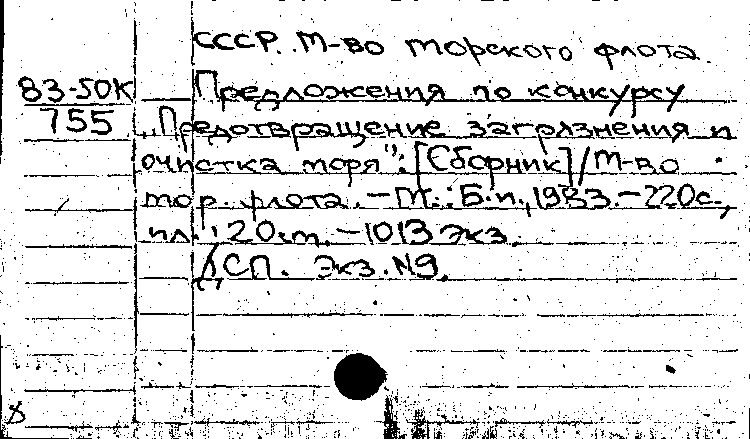 СССР. М-во морского флота.
83-50К Предложения по конкурсу
755 „Предотвращение загрязнения и
очистка моря": [Сборник]/М-во
мор. флота. – М.: Б.и., 1983. – 220с.,
ил.; 20см. – 1013 экз.
ДСП. Экз. N9.